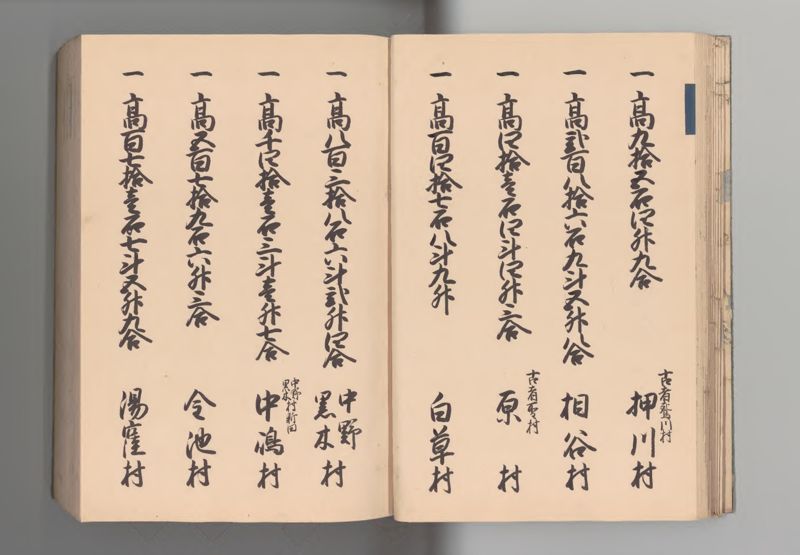 一 高九拾五石四升九合 古者鷲川村 押川村
一 高弐百八拾六石九斗五升八合 相谷村
一 高四拾壱石四斗四升三合 原村
一 高百四拾七石八斗九升 白草村
一 高八百三拾八石六斗弐升四合 中野 黒木村
一 高千四拾壱石三斗壱升七合 中野村 黒木 新田 中嶋村
一 高五百十拾九石六升三合 今池村
一 高百七拾壱石七斗五升九合 湯窪村